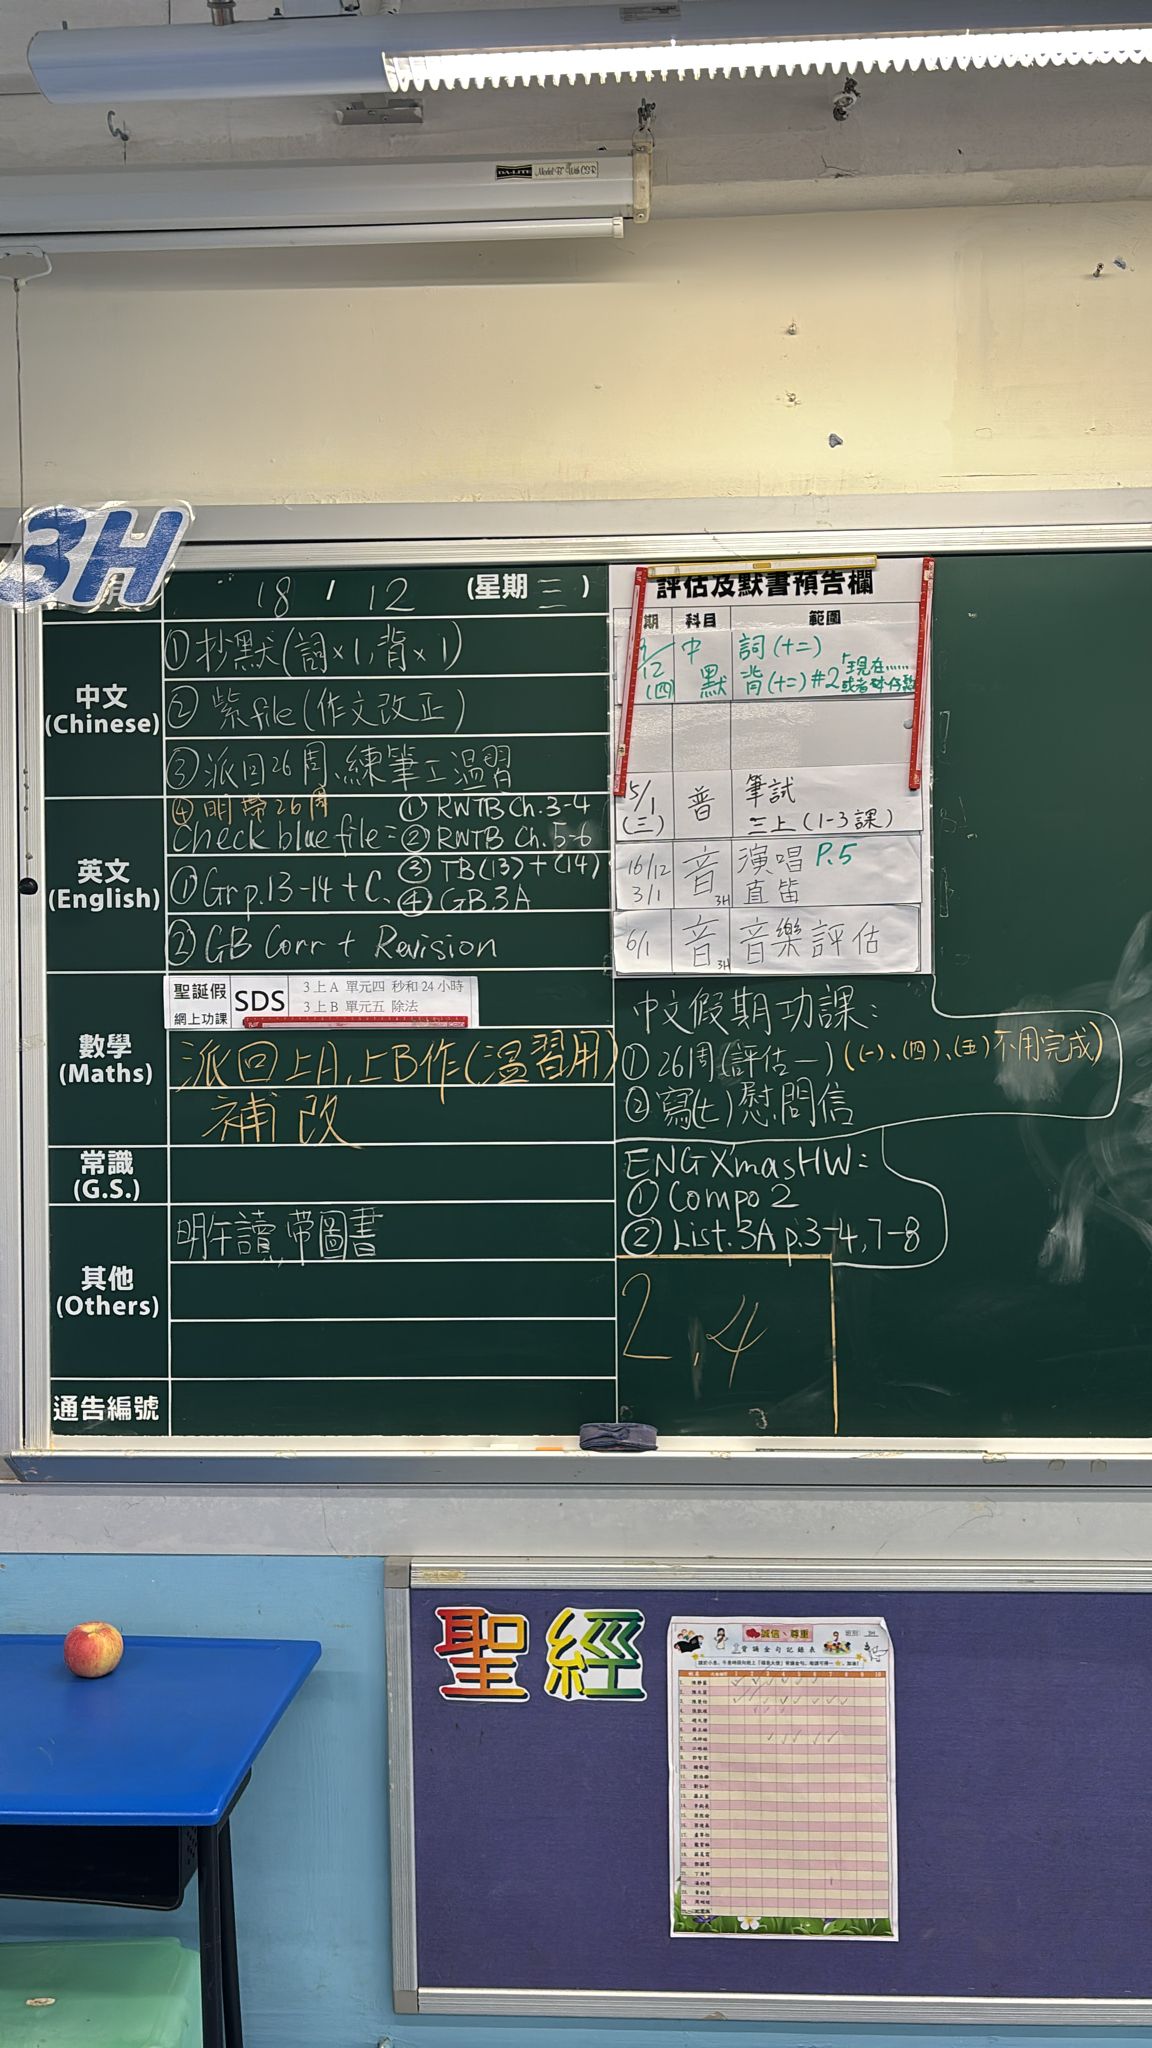 DA-LITE Model B With CSR
3H
18 / 12 (星期三)
中文
(Chinese)
①抄默(詞×1,背×1)
②紫file(作文改正)
③派回26周、練筆工溫習
④明帶26周
英文
(English)
check blue file: ① RWTB Ch.3-4
② RWTB Ch.5-6
③ TB(13)+(14)
④ GB.3A
①Gr p.13-14 + C.
②GB Corr + Revision
數學
(Maths)
聖誕假
網上功課
SDS
3上A 單元四 秒和24小時
3上B 單元五 除法
派回上A,上B作(溫習用)
補改
常識
(G.S.)
其他
(Others)
明午讀,帶圖書
通告編號
評估及默書預告欄
期 科目 範圍
12 (四)
中默
詞(十二)
背(十二)#2「現在……
5/1 (三)
普
筆試
三上(1-3課)
16/12
3/1
音 3H
演唱 P.5
直笛
6/1
音 3H
音樂評估
中文假期功課:
①26周(評估一)((一)、(四)、(五)不用完成)
②寫(七)慰問信
ENG X'mas HW:
① Compo 2
② List.3A p.3-4,7-8
2,4
聖經
誠信、尊重
背誦金句記錄表
班別: 3H
1 2 3 4 5 6 7 8 9 10